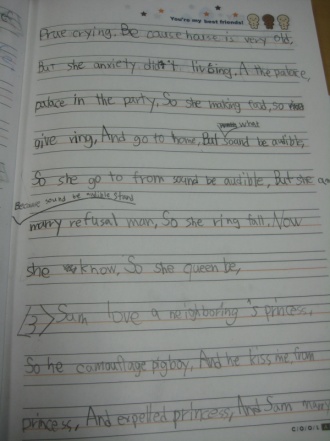 You're my best friends!
Prue crying. Be cause house is very old,
But she anxiety didn't livbing. A the palace,
palace in the party, So she making food, so
what
give ring, And go to home, But sound be audible,
So she go to from sound be audible, But she
Because sound be audible stand
marry refusal man, So she ring fall. Now
she know, So she queen be,
3> Sam love a neighboring's princess,
So he camouflage pigboy, And he kiss me, from
princess, And expelled princess, And Sam marry